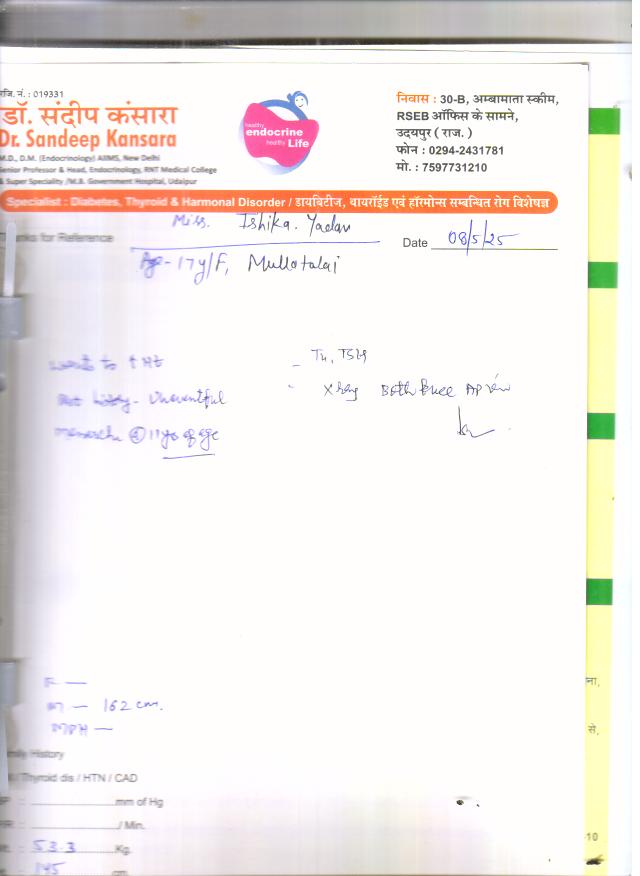 रजि. नं. : 019331
डॉ. संदीप कंसारा
Dr. Sandeep Kansara
M.D., D.M. (Endocrinology) AIIMS, New Delhi
Senior Professor & Head, Endocrinology, RNT Medical College
& Super Speciality /M.B. Government Hospital, Udaipur
healthy
endocrine
healthy Life
निवास : 30-B, अम्बामाता स्कीम,
RSEB ऑफिस के सामने,
उदयपुर ( राज. )
फोन : 0294-2431781
मो. : 7597731210
Specialist : Diabetes, Thyroid & Harmonal Disorder / डायबिटीज, थायरॉईड एवं हॉरमोन्स सम्बन्धित रोग विशेषज्ञ
Miss. Ishika. Yadav
Thanks for Reference
Date 08/5/25
Age - 17y/F, Mullatalai
wants to ↑ Ht
- T4, TSH
History - Uneventful
- Xray Both knee AP view
menarche @ 11 yrs of age
F —
M — 162 cm.
MPH —
Family History
/ Thyroid dis / HTN / CAD
mm of Hg
/ Min.
53.3 Kg.
145 cm
ना,
से,
-10